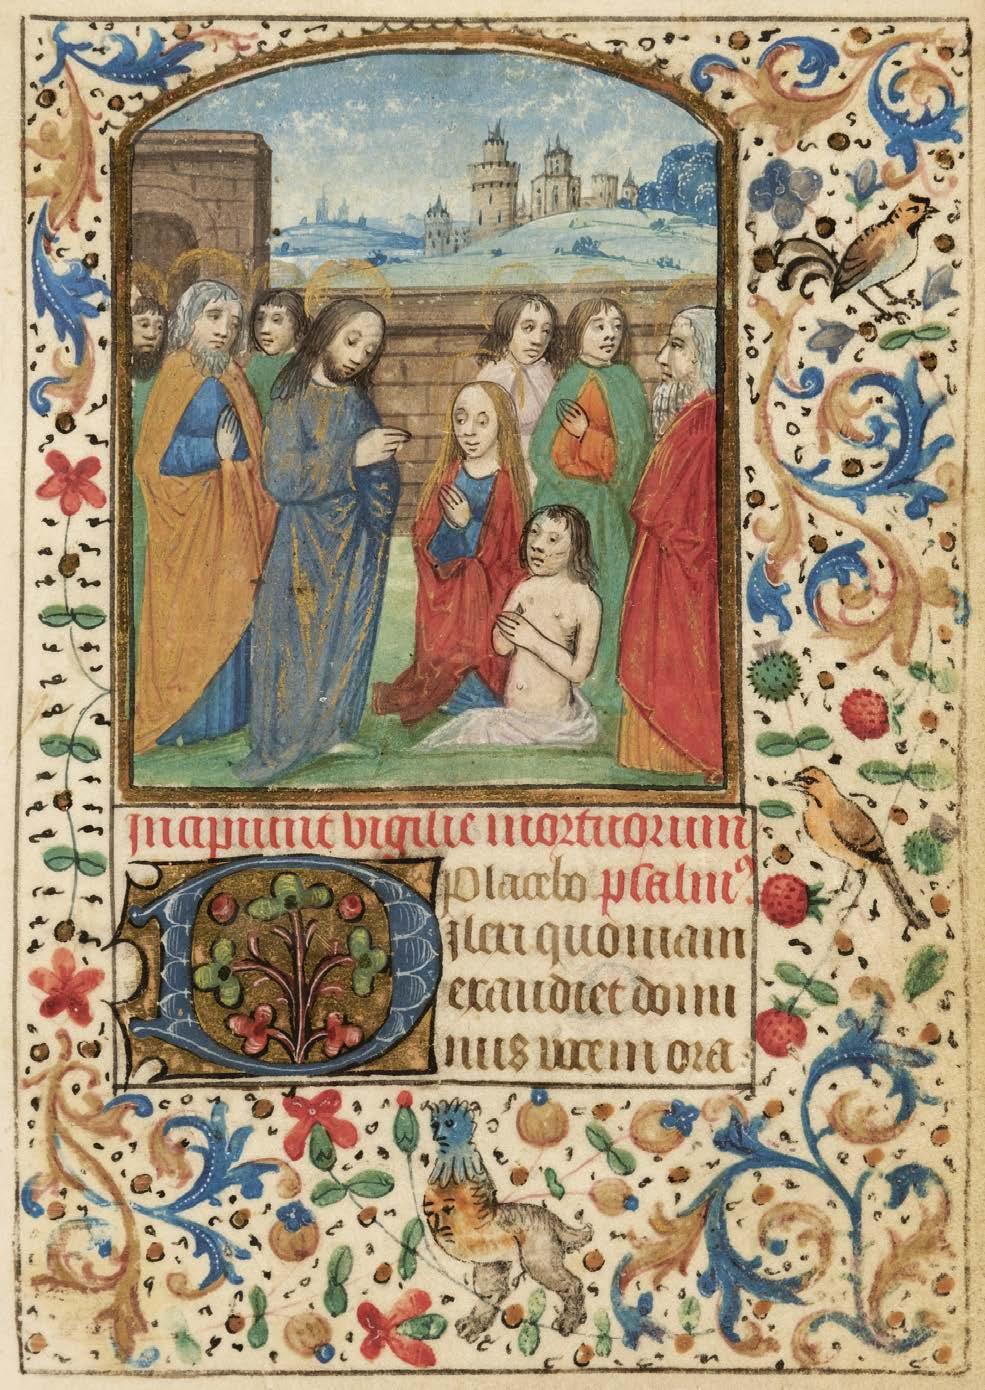 Incipiunt vigilie mortuorum
Placebo psalmꝰ.
Dilexi quoniam
exaudiet domi
nus vocem ora